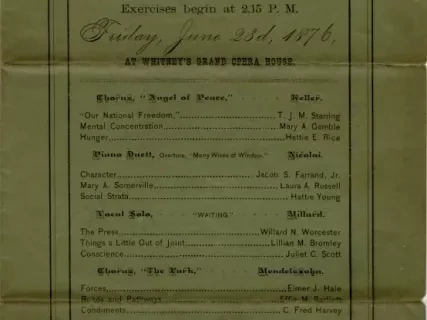 Exercises begin at 2.15 P. M.
Friday, June 23d, 1876,
AT WHITNEY'S GRAND OPERA HOUSE.
Chorus, "Angel of Peace," - - - - Keller.
"Our National Freedom,".......... T. J. M. Starring
Mental Concentration.......... Mary A. Gamble
Hunger.......... Hattie E. Rice
Piano Duett, Overture, "Merry Wives of Windsor." Nicolai.
Character.......... Jacob S. Farrand, Jr.
Mary A. Somerville.......... Laura A. Russell
Social Strata.......... Hattie Young
Vocal Solo, - - "WAITING." - - Millard.
The Press.......... Willard N. Worcester
Things a Little Out of Joint.......... Lillian M. Bromley
Conscience.......... Juliet C. Scott
Chorus, "The Lark," - - - - Mendelssohn.
Forces.......... Elmer J. Hale
Roads and Pathways.......... Effie M. Bartlett
Condiments.......... C. Fred Harvey